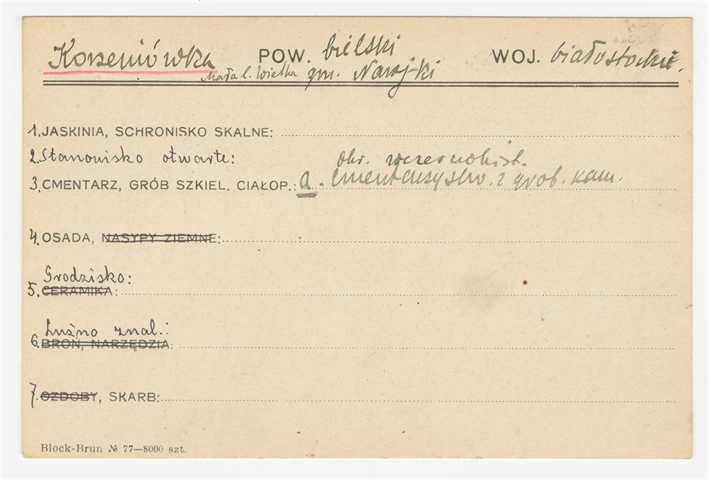 Korzeniówka POW. bielski WOJ. białostockie.
Mała l. Wielka gm. Narojki
1. JASKINIA, SCHRONISKO SKALNE:
2. Stanowisko otwarte: okr. wczesnohist.
3. CMENTARZ, GRÓB SZKIEL. CIAŁOP.: a. Cmentarzysko z grob. kam.
4. OSADA, NASYPY ZIEMNE:
Grodzisko:
5. CERAMIKA:
Luźno znal.:
6. BROŃ, NARZĘDZIA:
7. OZDOBY, SKARB:
Block-Brun № 77—8000 szt.